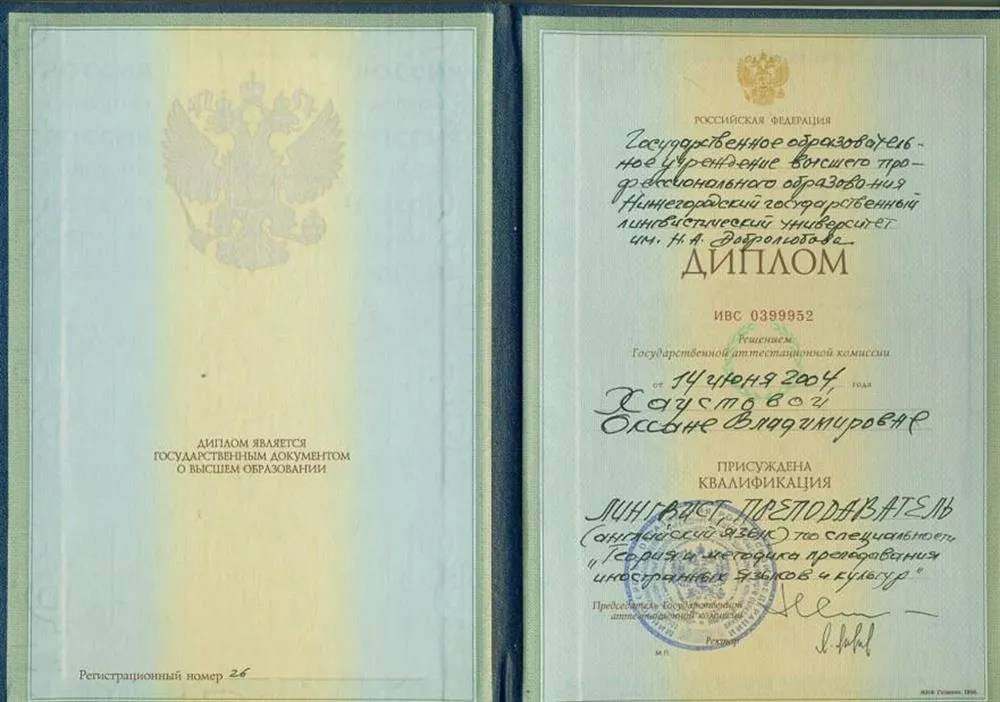 ДИПЛОМ ЯВЛЯЕТСЯ
ГОСУДАРСТВЕННЫМ ДОКУМЕНТОМ
О ВЫСШЕМ ОБРАЗОВАНИИ
Регистрационный номер 26
РОССИЙСКАЯ ФЕДЕРАЦИЯ
Государственное образователь-
ное учреждение высшего про-
фессионального образования
Нижегородский государственный
лингвистический университет
им. Н.А. Добролюбова
ДИПЛОМ
ИВС 0399952
Решением
Государственной аттестационной комиссии
от 14 июня 2004 года
Хаустовой
Оксане Владимировне
ПРИСУЖДЕНА
КВАЛИФИКАЦИЯ
ЛИНГВИСТ, ПРЕПОДАВАТЕЛЬ
(английский язык) по специальности
"Теория и методика преподавания
иностранных языков и культур"
Председатель Государственной
аттестационной комиссии
Ректор
М.П.